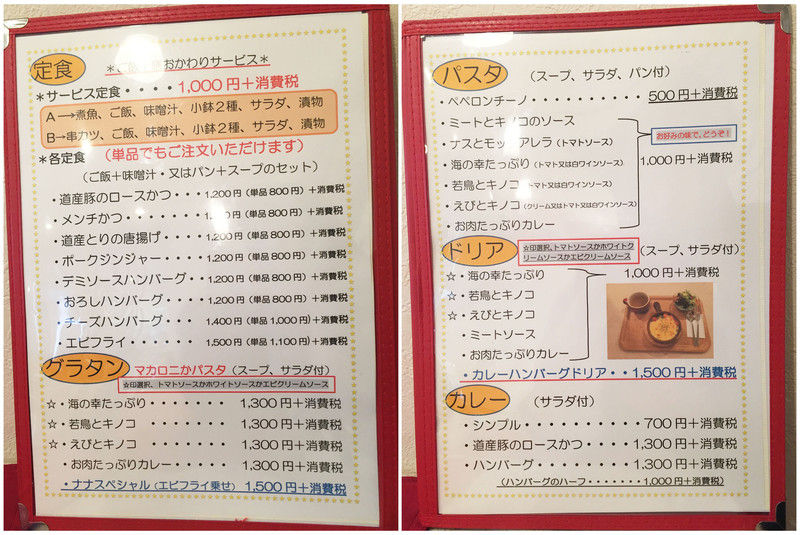 定食
おかわりサービス＊
＊サービス定食・・・・・1,000円＋消費税
A→煮魚、ご飯、味噌汁、小鉢２種、サラダ、漬物
B→串カツ、ご飯、味噌汁、小鉢２種、サラダ、漬物
＊各定食　（単品でもご注文いただけます）
（ご飯＋味噌汁・又はパン＋スープのセット）
・道産豚のロースかつ・・1,200円（単品800円）＋消費税
・メンチかつ・・・・・・1,200円（単品800円）＋消費税
・道産とりの唐揚げ・・・・1,200円（単品800円）＋消費税
・ポークジンジャー・・・・1,200円（単品800円）＋消費税
・デミソースハンバーグ・・1,200円（単品800円）＋消費税
・おろしハンバーグ・・・・1,200円（単品800円）＋消費税
・チーズハンバーグ・・・1,400円（単品1,000円）＋消費税
・エビフライ・・・・・・1,500円（単品1,100円）＋消費税
グラタン　マカロニかパスタ（スープ、サラダ付）
☆印選択、トマトソースかホワイトソースかエビクリームソース
☆・海の幸たっぷり・・・・・・・1,300円＋消費税
☆・若鳥とキノコ・・・・・・・・1,300円＋消費税
☆・えびとキノコ・・・・・・・・1,300円＋消費税
・お肉たっぷりカレー・・・・・1,300円＋消費税
・ナナスペシャル（エビフライ乗せ）1,500円＋消費税
パスタ　（スープ、サラダ、パン付）
・ペペロンチーノ・・・・・・・・・500円＋消費税
・ミートとキノコのソース
・ナスとモッツアレラ（トマトソース）
お好みの味で、どうぞ！
・海の幸たっぷり（トマト又は白ワインソース）
1,000円＋消費税
・若鳥とキノコ（トマト又は白ワインソース）
・えびとキノコ（クリーム又はトマト又は白ワインソース）
・お肉たっぷりカレー
ドリア　☆印選択、トマトソースかホワイトク
リームソースかエビクリームソース
（スープ、サラダ付）
☆・海の幸たっぷり　1,000円＋消費税
☆・若鳥とキノコ
☆・えびとキノコ
・ミートソース
・お肉たっぷりカレー
・カレーハンバーグドリア・・1,500円＋消費税
カレー　（サラダ付）
・シンプル・・・・・・・・・・700円＋消費税
・道産豚のロースかつ・・・・1,300円＋消費税
・ハンバーグ・・・・・・・・1,300円＋消費税
（ハンバーグのハーフ・・・・・・・1,000円＋消費税）